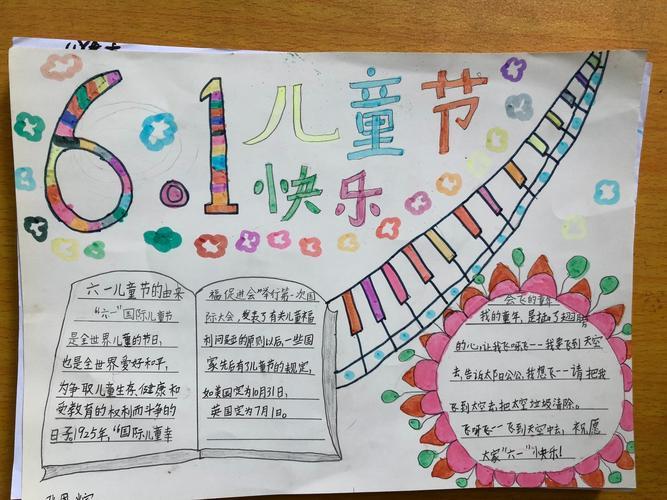 6.1儿童节
快乐
六一儿童节的由来
"六一"国际儿童节
是全世界儿童的节日,
也是全世界爱好和平,
为争取儿童生存、健康和
受教育的权利而斗争的
日子,1925年,"国际儿童幸
福促进会"举行第一次国
际大会,发表了有关儿童福
利问题的原则以后,一些国
家先后有了儿童节的规定,
如美国定为10月31日,
英国定为7月1日。
会飞的童年
我的童年,是插了翅膀
的心,让我飞呀飞--我要飞到天空
去,告诉太阳公公,我想飞--请把我
飞到太空去,把太空垃圾清除。
飞呀飞--飞到天空中去,祝愿
大家"六一"快乐!